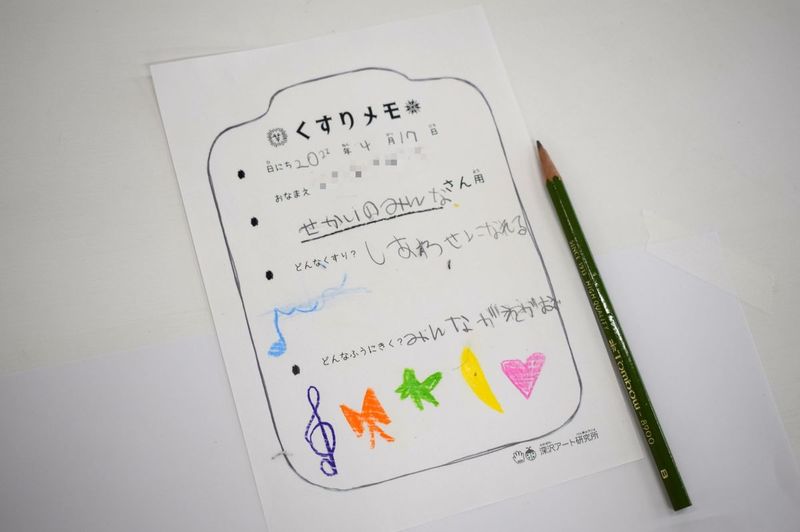 くすりメモ
日にち2022年4月17日
おなまえ
せかいのみんなさん用
どんなくすり?しあわせになれる
どんなふうにきく?みんながえがお
深沢アート研究所
SINCE 1913 HIGH QUALITY Tombow 8900 B